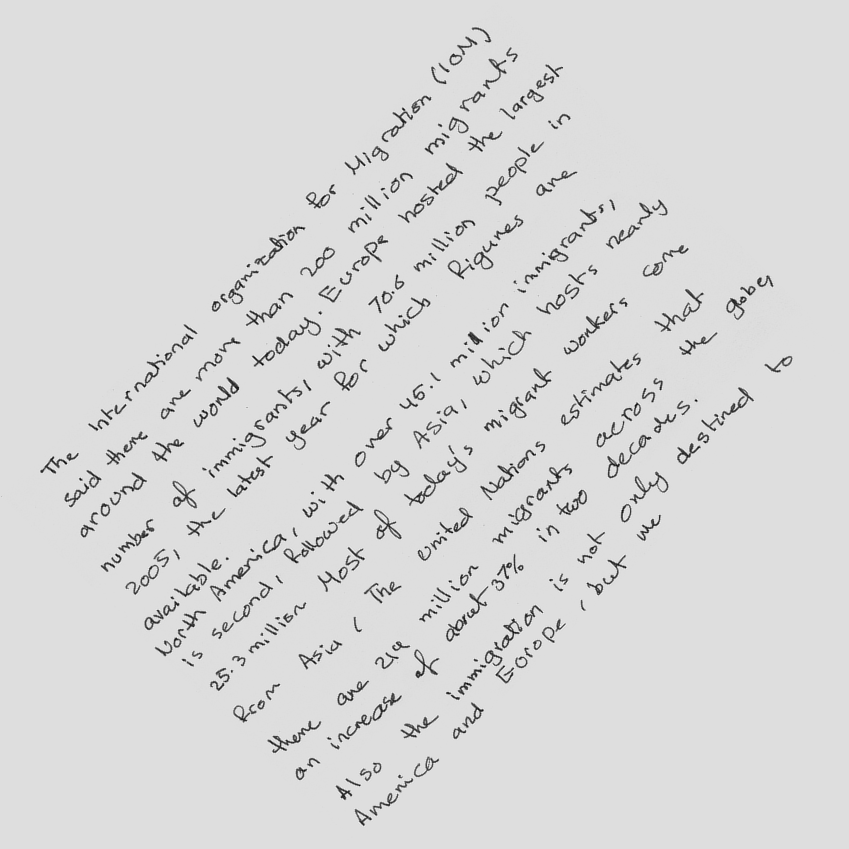 The International organization for Migration (IOM)
said there are more than 200 million migrants
around the world today. Europe hosted the largest
number of immigrants, with 70.6 million people in
2005, the latest year for which figures are
available.
North America, with over 45.1 million immigrants,
is second, followed by Asia, which hosts nearly
25.3 million Most of today's migrant workers come
from Asia, The united Nations estimates that
there are 214 million migrants across the globe,
an increase of about 37% in two decades.
Also the immigration is not only destined to
America and Europe, but we